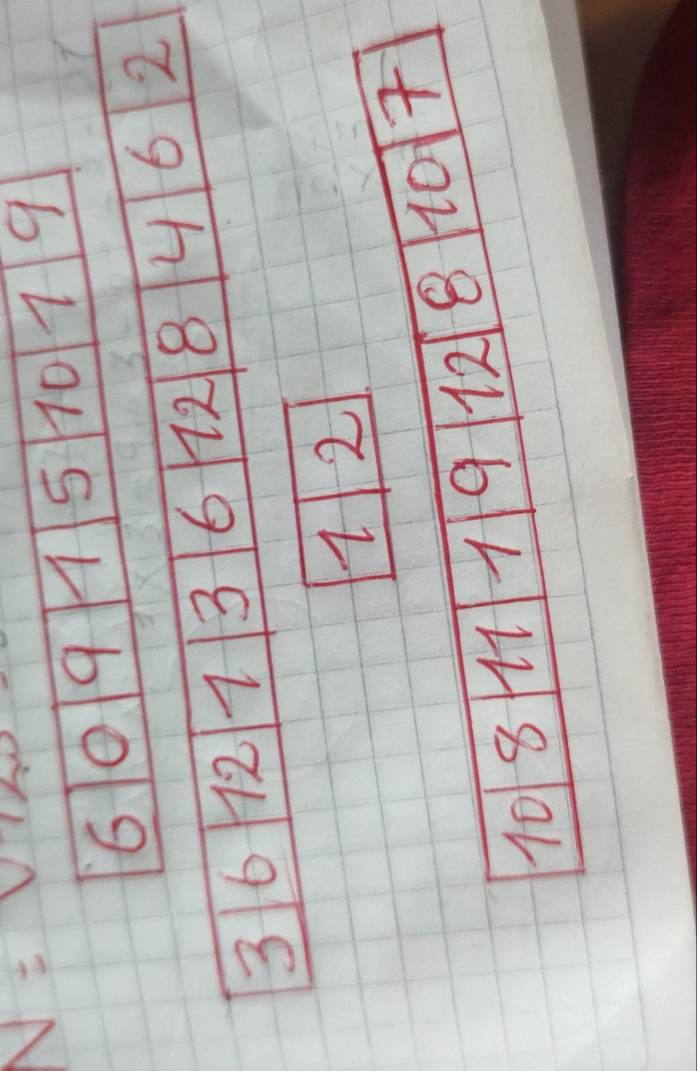 N =
6 0 9 1 5 10 1 9
3 6 12 1 3 6 12 8 4 6 2
1 2
10 8 11 1 9 12 8 10 7